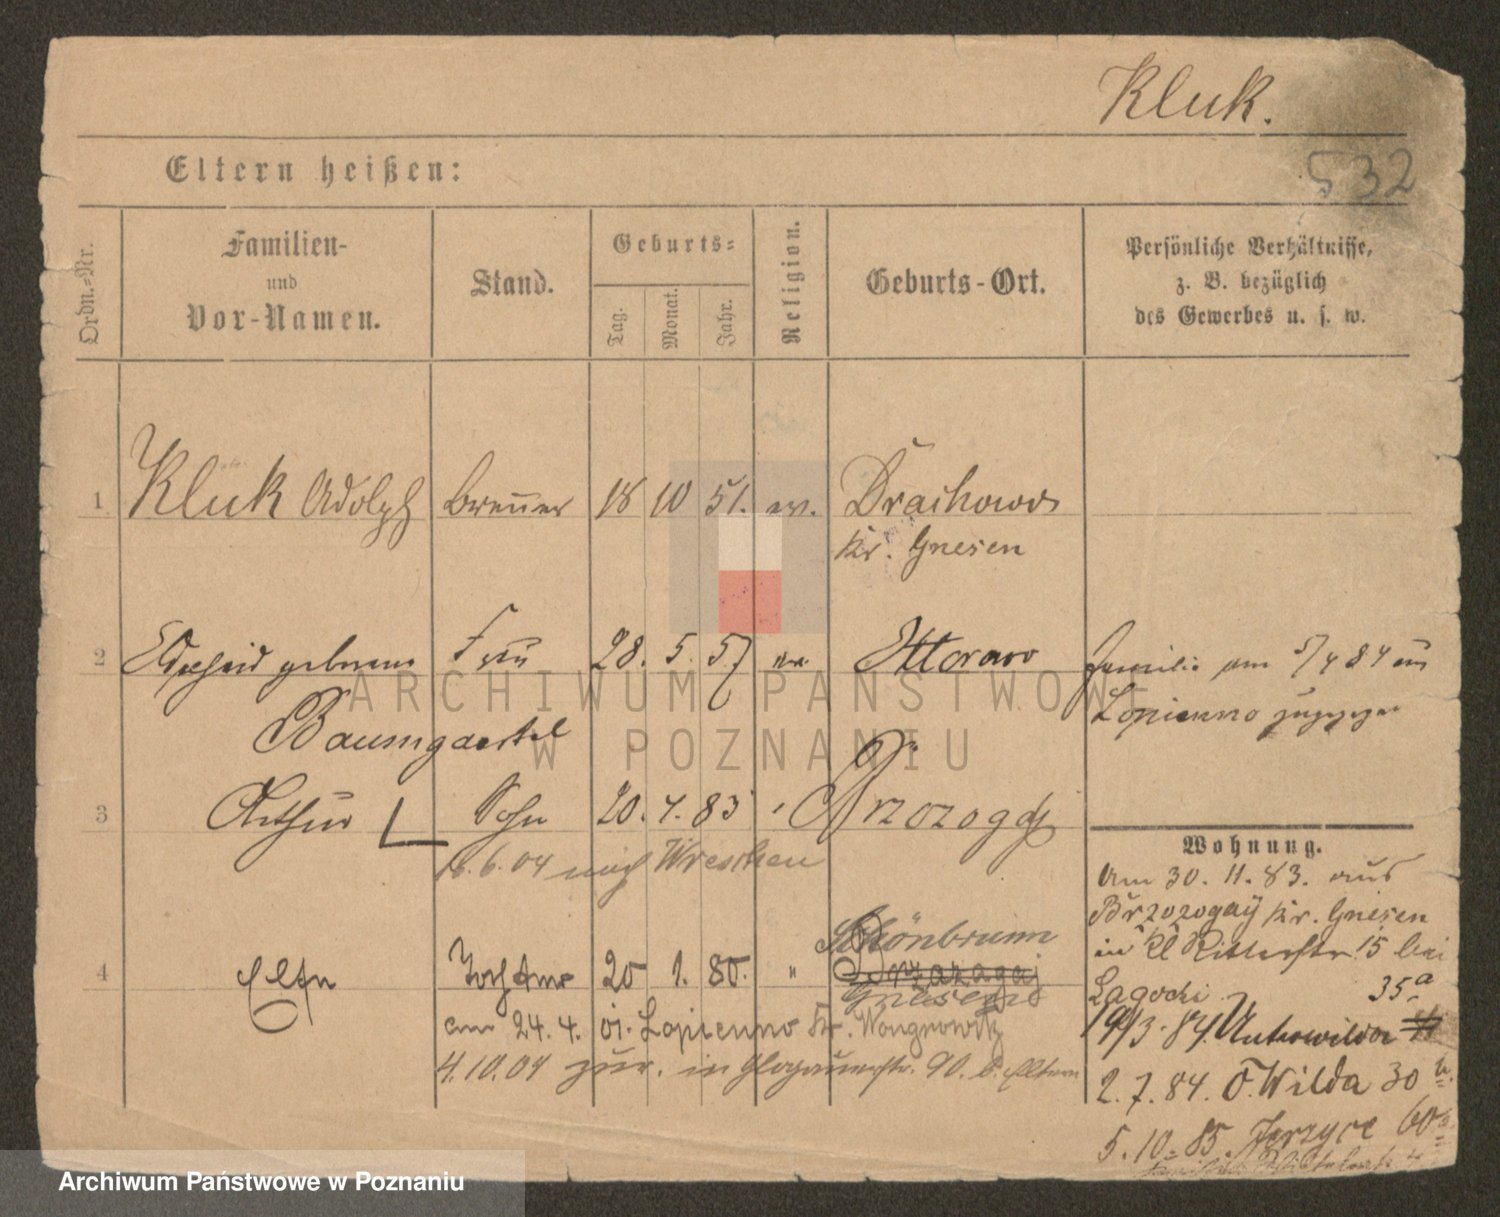 Kluk.
532
Eltern heißen:
Ordn.-Nr.
Familien-
und
Vor-Namen.
Stand.
Geburts-
Tag.
Monat.
Jahr.
Religion.
Geburts-Ort.
Persönliche Verhältnisse,
z. B. bezüglich
des Gewerbes u. s. w.
1 Kluk Adolph 18 10 51. ev. Drachowo
Kr. Gnesen
2 geborene Frau 28. 5. 57 ev. Familie am 5/4 84 aus
Baumgaertel Lopienno zugezogen
3 Arthur Sohn 20. 4. 83
6.04 nach Wreschen
Wohnung.
Am 30. 11. 83. aus
Brzozogay Kr. Gnesen
in Kl Ritterstr. 15 bei
35a
Schönbrunn
4 Tochter 20 1. 80. " Brzazagaj
Gnesen
am 24. 4. Lopienno Kr. Wongrowitz
19/3. 84. Unterwilda
4.10.04 zur. in Glogauerstr. 90. b. Eltern
2. 7. 84. O. Wilda 30
5. 10. 85. Jerzyce 60
ARCHIWUM PAŃSTWOWE
W POZNANIU
Archiwum Państwowe w Poznaniu